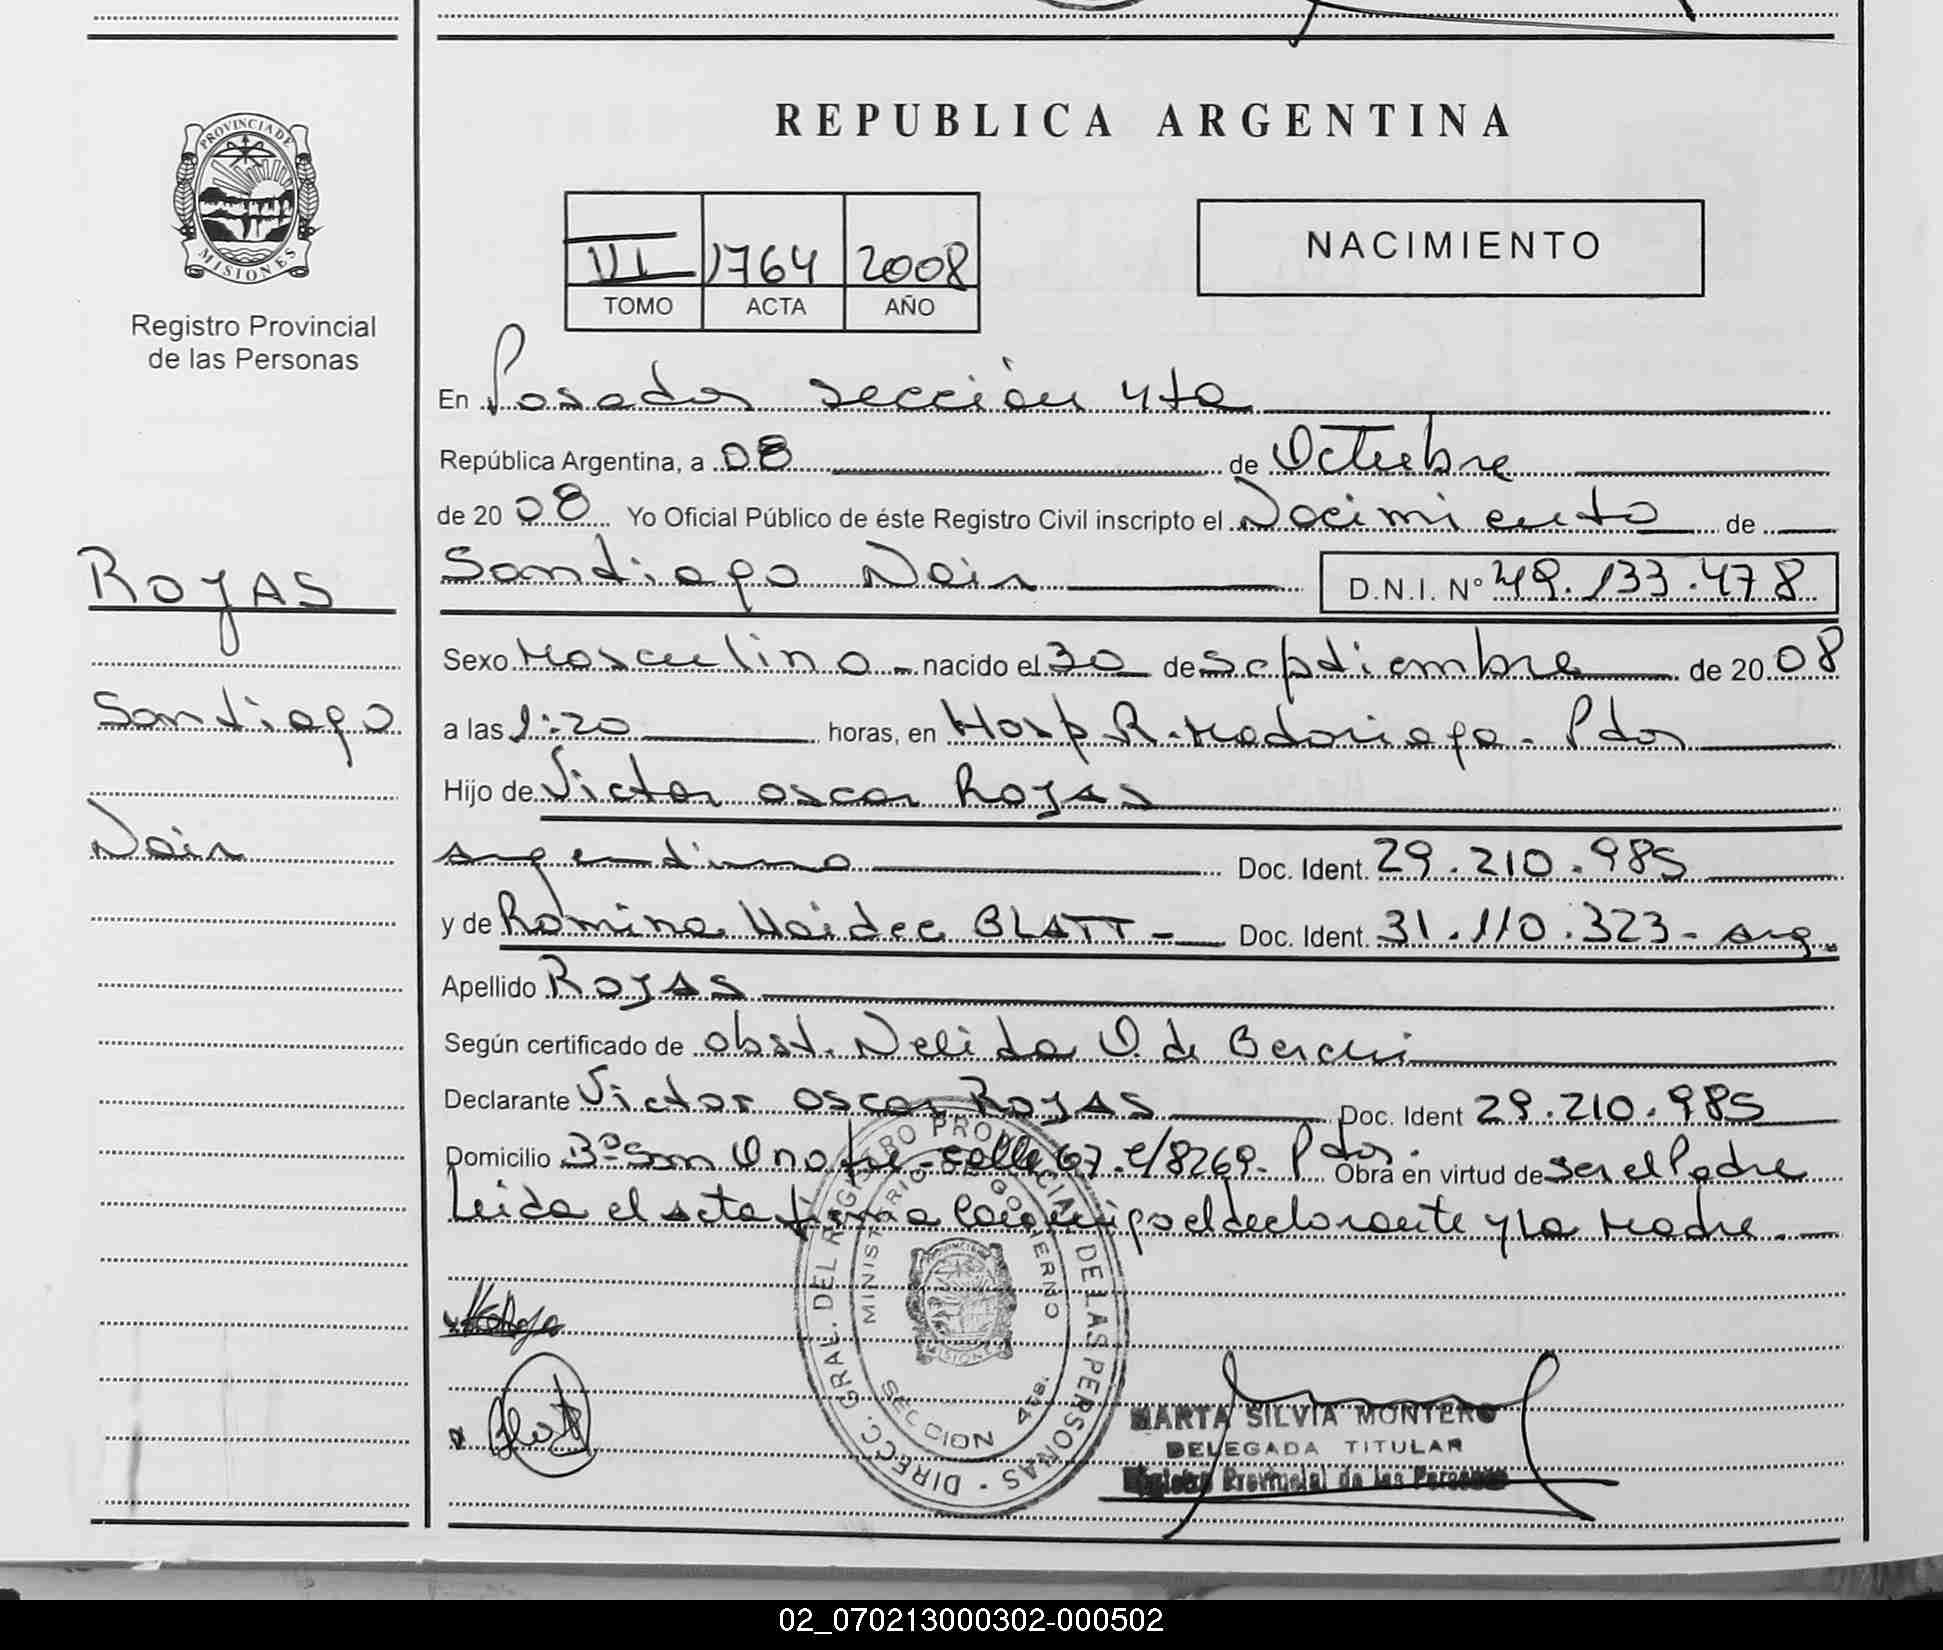 REPUBLICA ARGENTINA
PROVINCIA DE
MISIONES
Registro Provincial
de las Personas
VI 1764 2008
TOMO ACTA AÑO
NACIMIENTO
En Posadas sección 4ta
República Argentina, a 08 de Octubre
de 20 08 Yo Oficial Público de éste Registro Civil inscripto el Nacimiento de
ROJAS
Santiago
Nair
Santiago Nair D.N.I. Nº 49.133.478
Sexo Masculino - nacido el 30 de Septiembre de 20 08
a las 1:20 horas, en Hosp R. Madariaga - Pdas
Hijo de Victor Oscar Rojas
Argentino Doc. Ident. 29.210.985
y de Romina Haidee BLATT - Doc. Ident. 31.110.323 - Arg.
Apellido ROJAS
Según certificado de obst. Nelida O. de
Declarante Victor Oscar ROJAS Doc. Ident 29.210.985
Domicilio Bº San Onofre - calle 67 - C/8269 - Pdas. Obra en virtud de ser el Padre
Leida el acta firma conmigo el declarante y la Madre. -
DIRECC. GRAL. DEL REGISTRO PROVINCIAL DE LAS PERSONAS -
MINISTERIO DE GOBIERNO
SECCION 4ta.
MISIONES
MARTA SILVIA MONTERO
DELEGADA TITULAR
Registro Provincial de las Personas
02_070213000302-000502